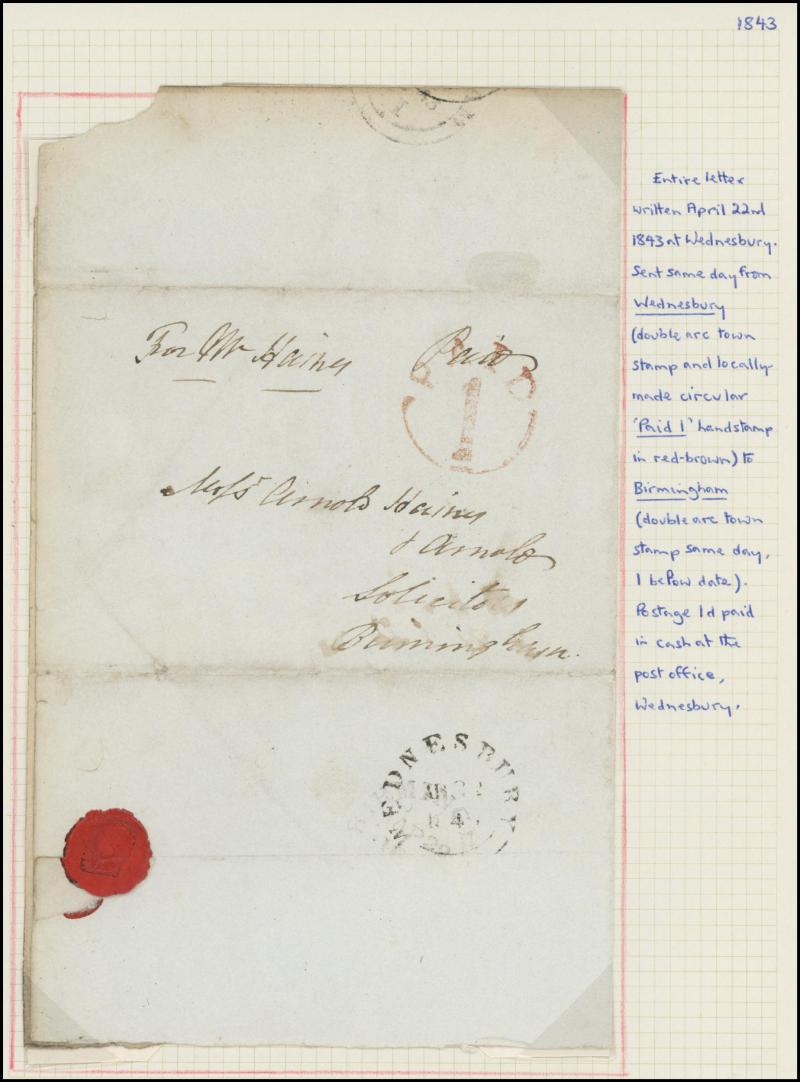 1843
For Mr Haines Paid
PAID
1
Messrs Arnold Haines
& Arnold
Solicitors
Birmingham.
WEDNESBURY
Entire letter
written April 22nd
1843 at Wednesbury.
Sent same day from
Wednesbury
(double arc town
stamp and locally-
made circular
'Paid 1' handstamp
in red-brown) to
Birmingham
(double arc town
stamp same day,
1 below date).
Postage 1d paid
in cash at the
post office,
Wednesbury.